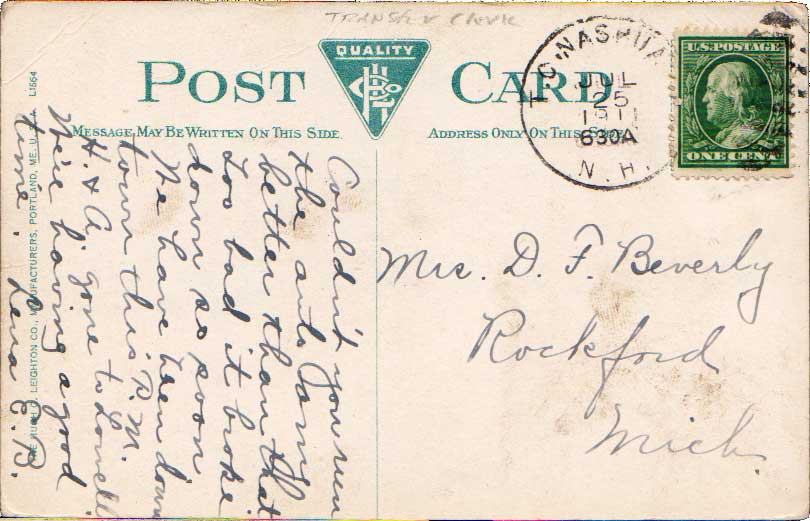 TRANSFER CLERK
QUALITY
POST CARD
MESSAGE MAY BE WRITTEN ON THIS SIDE.
ADDRESS ONLY ON THIS SIDE
NASHUA
JUL
25
1911
630A
N.H.
U.S. POSTAGE
ONE CENT
Couldn't you run
the auto
better than that
Too bad it broke
down so soon
We have been down
town this P.M.
H. & A. gone to Lowell
We're having a good
time.
Lena E. B.
Mrs. D. F. Beverly
Rockford
Mich
THE HUGH C. LEIGHTON CO., MANUFACTURERS, PORTLAND, ME. U.S.A. L1564